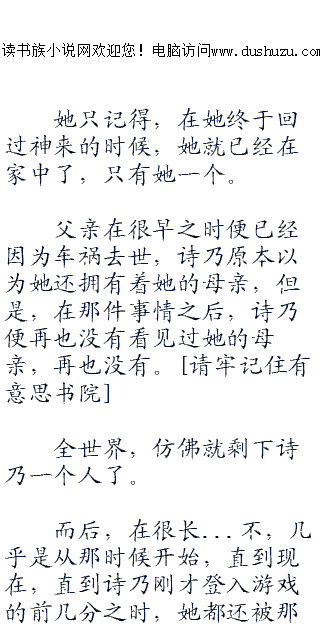 读书族小说网欢迎您！电脑访问www.dushuzu.com
她只记得，在她终于回
过神来的时候，她就已经在
家中了，只有她一个。
父亲在很早之时便已经
因为车祸去世，诗乃原本以
为她还拥有着她的母亲，但
是，在那件事情之后，诗乃
便再也没有看见过她的母
亲，再也没有。[请牢记住有
意思书院]
全世界，仿佛就剩下诗
乃一个人了。
而后，在很长...不，几
乎是从那时候开始，直到现
在，直到诗乃刚才登入游戏
的前几分之时，她都还被那